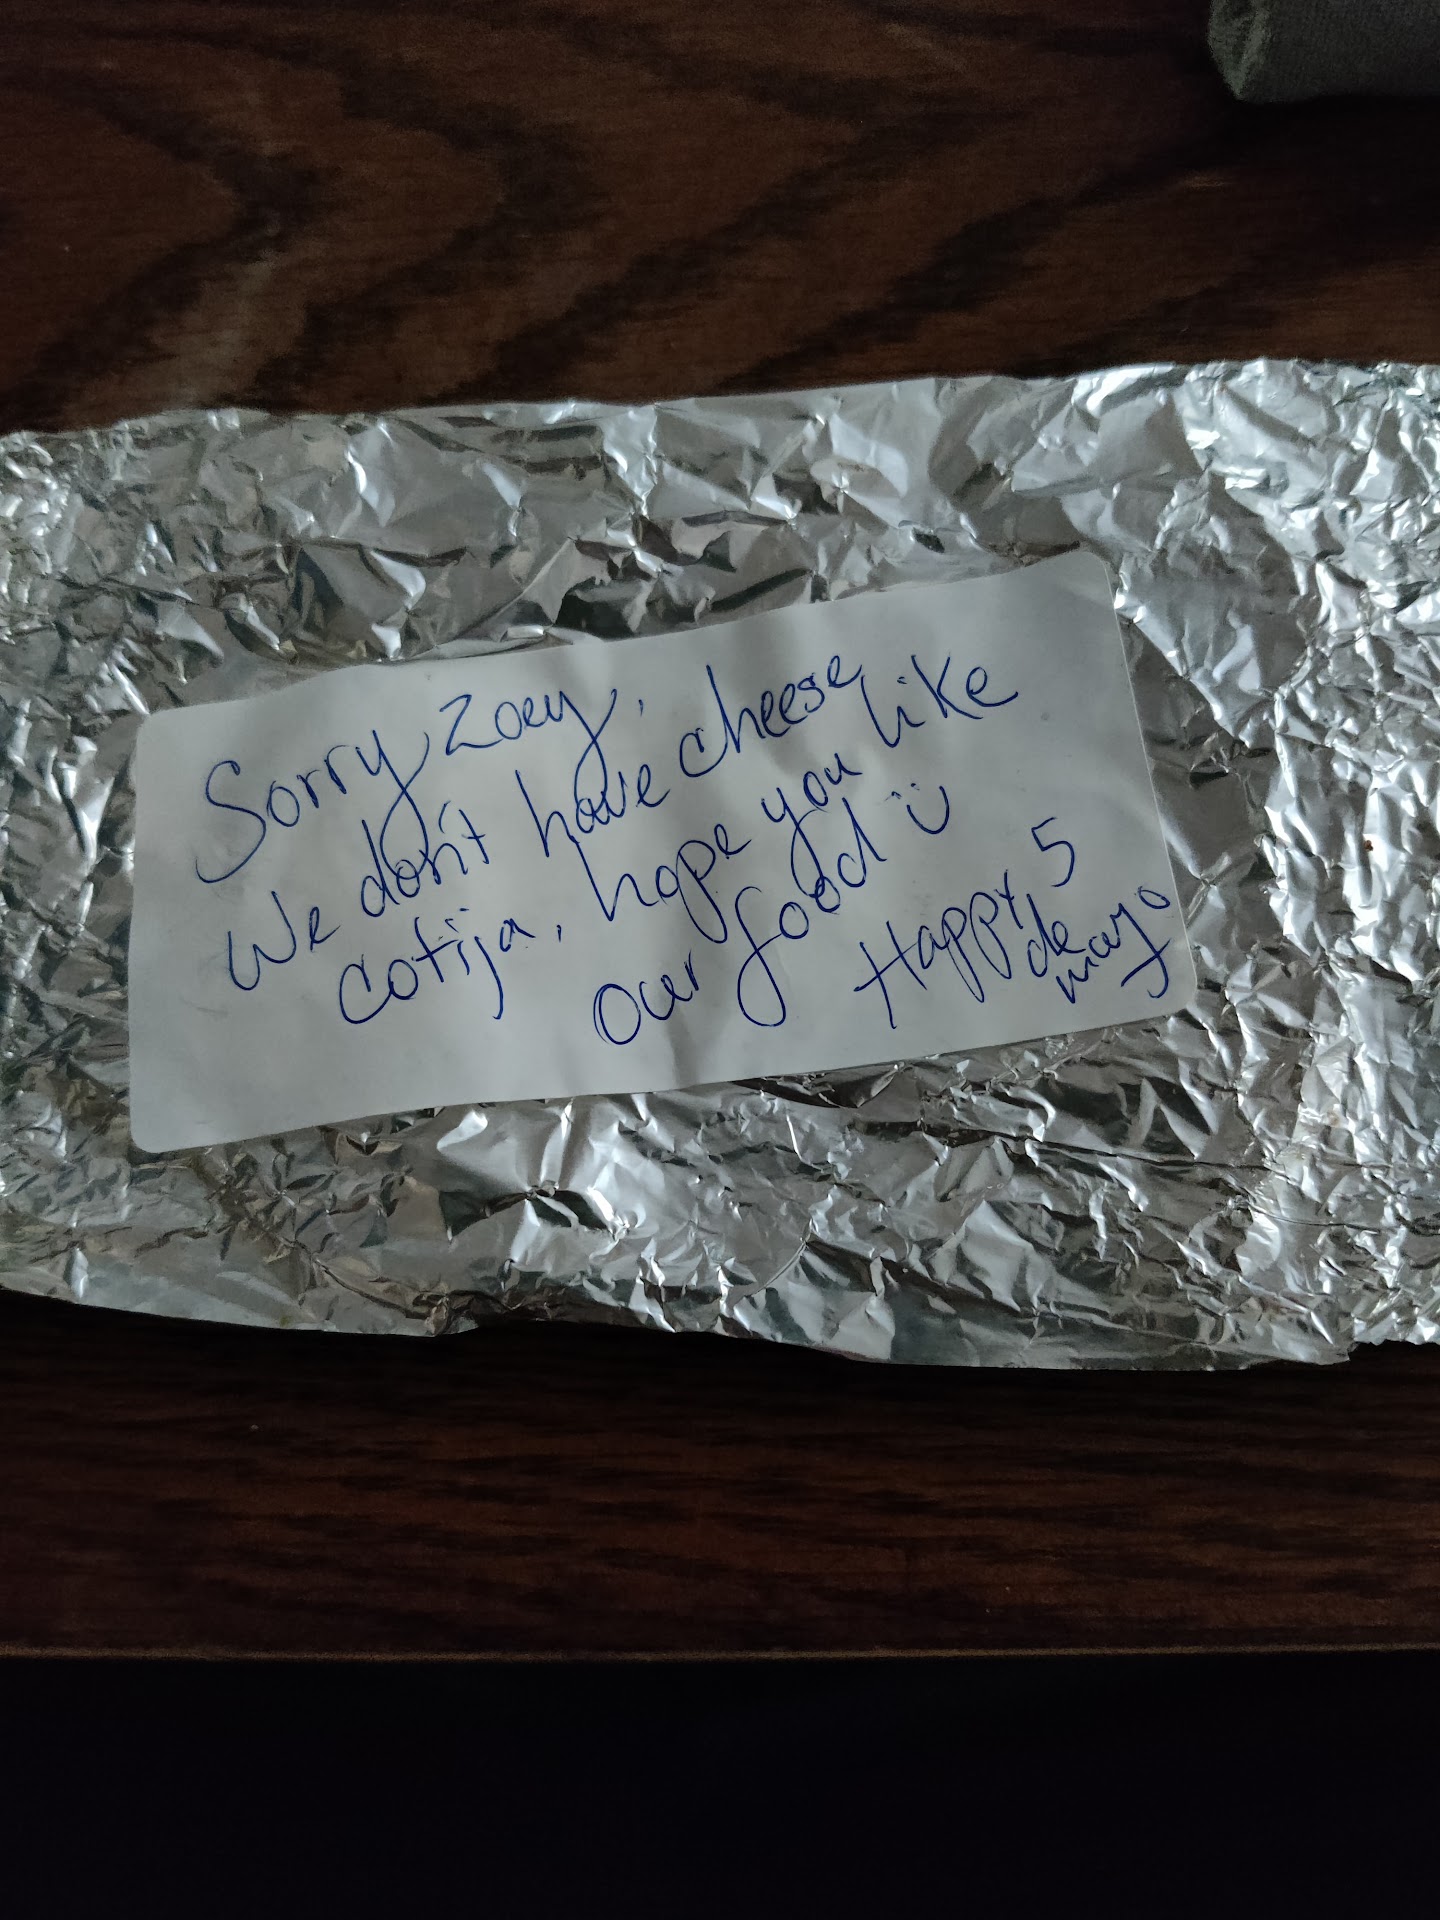 Sorry Zoey,
We don't have cheese
cotija, hope you like
our food :)
Happy 5
de
mayo